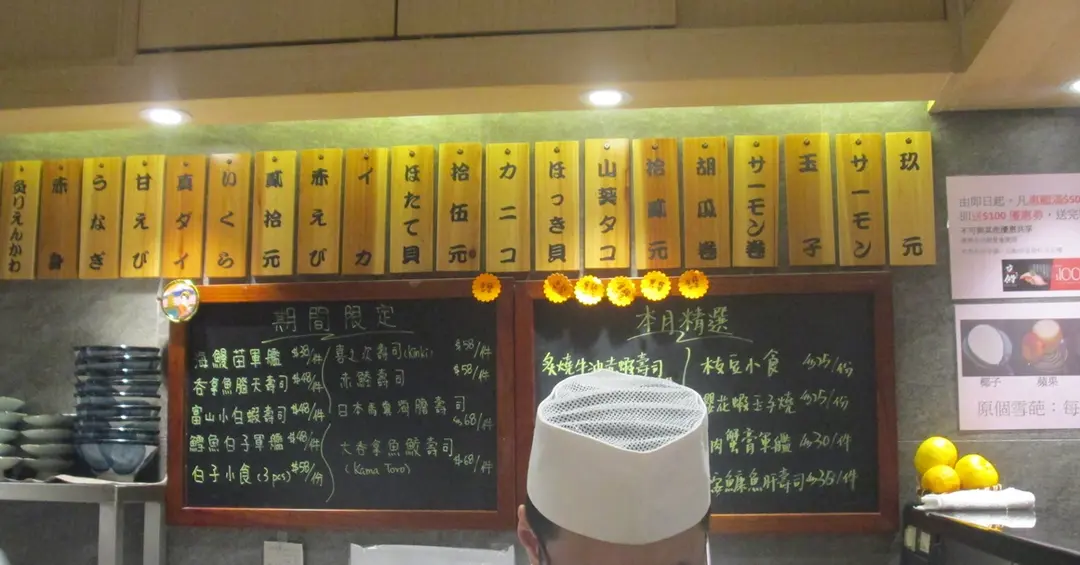 炙りえんがわ
赤身
うなぎ
甘えび
真ダイ
いくら
貳拾元
赤えび
イカ
ほたて貝
拾伍元
カニコ
ほっき貝
山葵タコ
拾貳元
胡瓜巻
サーモン巻
玉子
サーモン
玖元
期間限定
海鰻苗軍艦 $38/件
吞拿魚腦天壽司 $48/件
富山小白蝦壽司 $48/件
鱈魚白子軍艦 $48/件
白子小食 (3pcs) $58/份
喜之次壽司 (Kinki) $58/件
赤鯥壽司 $58/件
日本馬魚潤膽壽司 $68/件
大吞拿魚鮫壽司 $68/件
(Kama Toro)
本月精選
炙燒牛油煮蝦壽司
枝豆小食 $25/份
櫻花蝦玉子燒 $25/份
肉蟹膏軍艦 $30/件
魚肝壽司 $35/件
由即日起，凡惠顧滿$50
即送$100 優惠券，送完
不可與其他優惠共享
$100
椰子
蘋果
原個雪葩：每